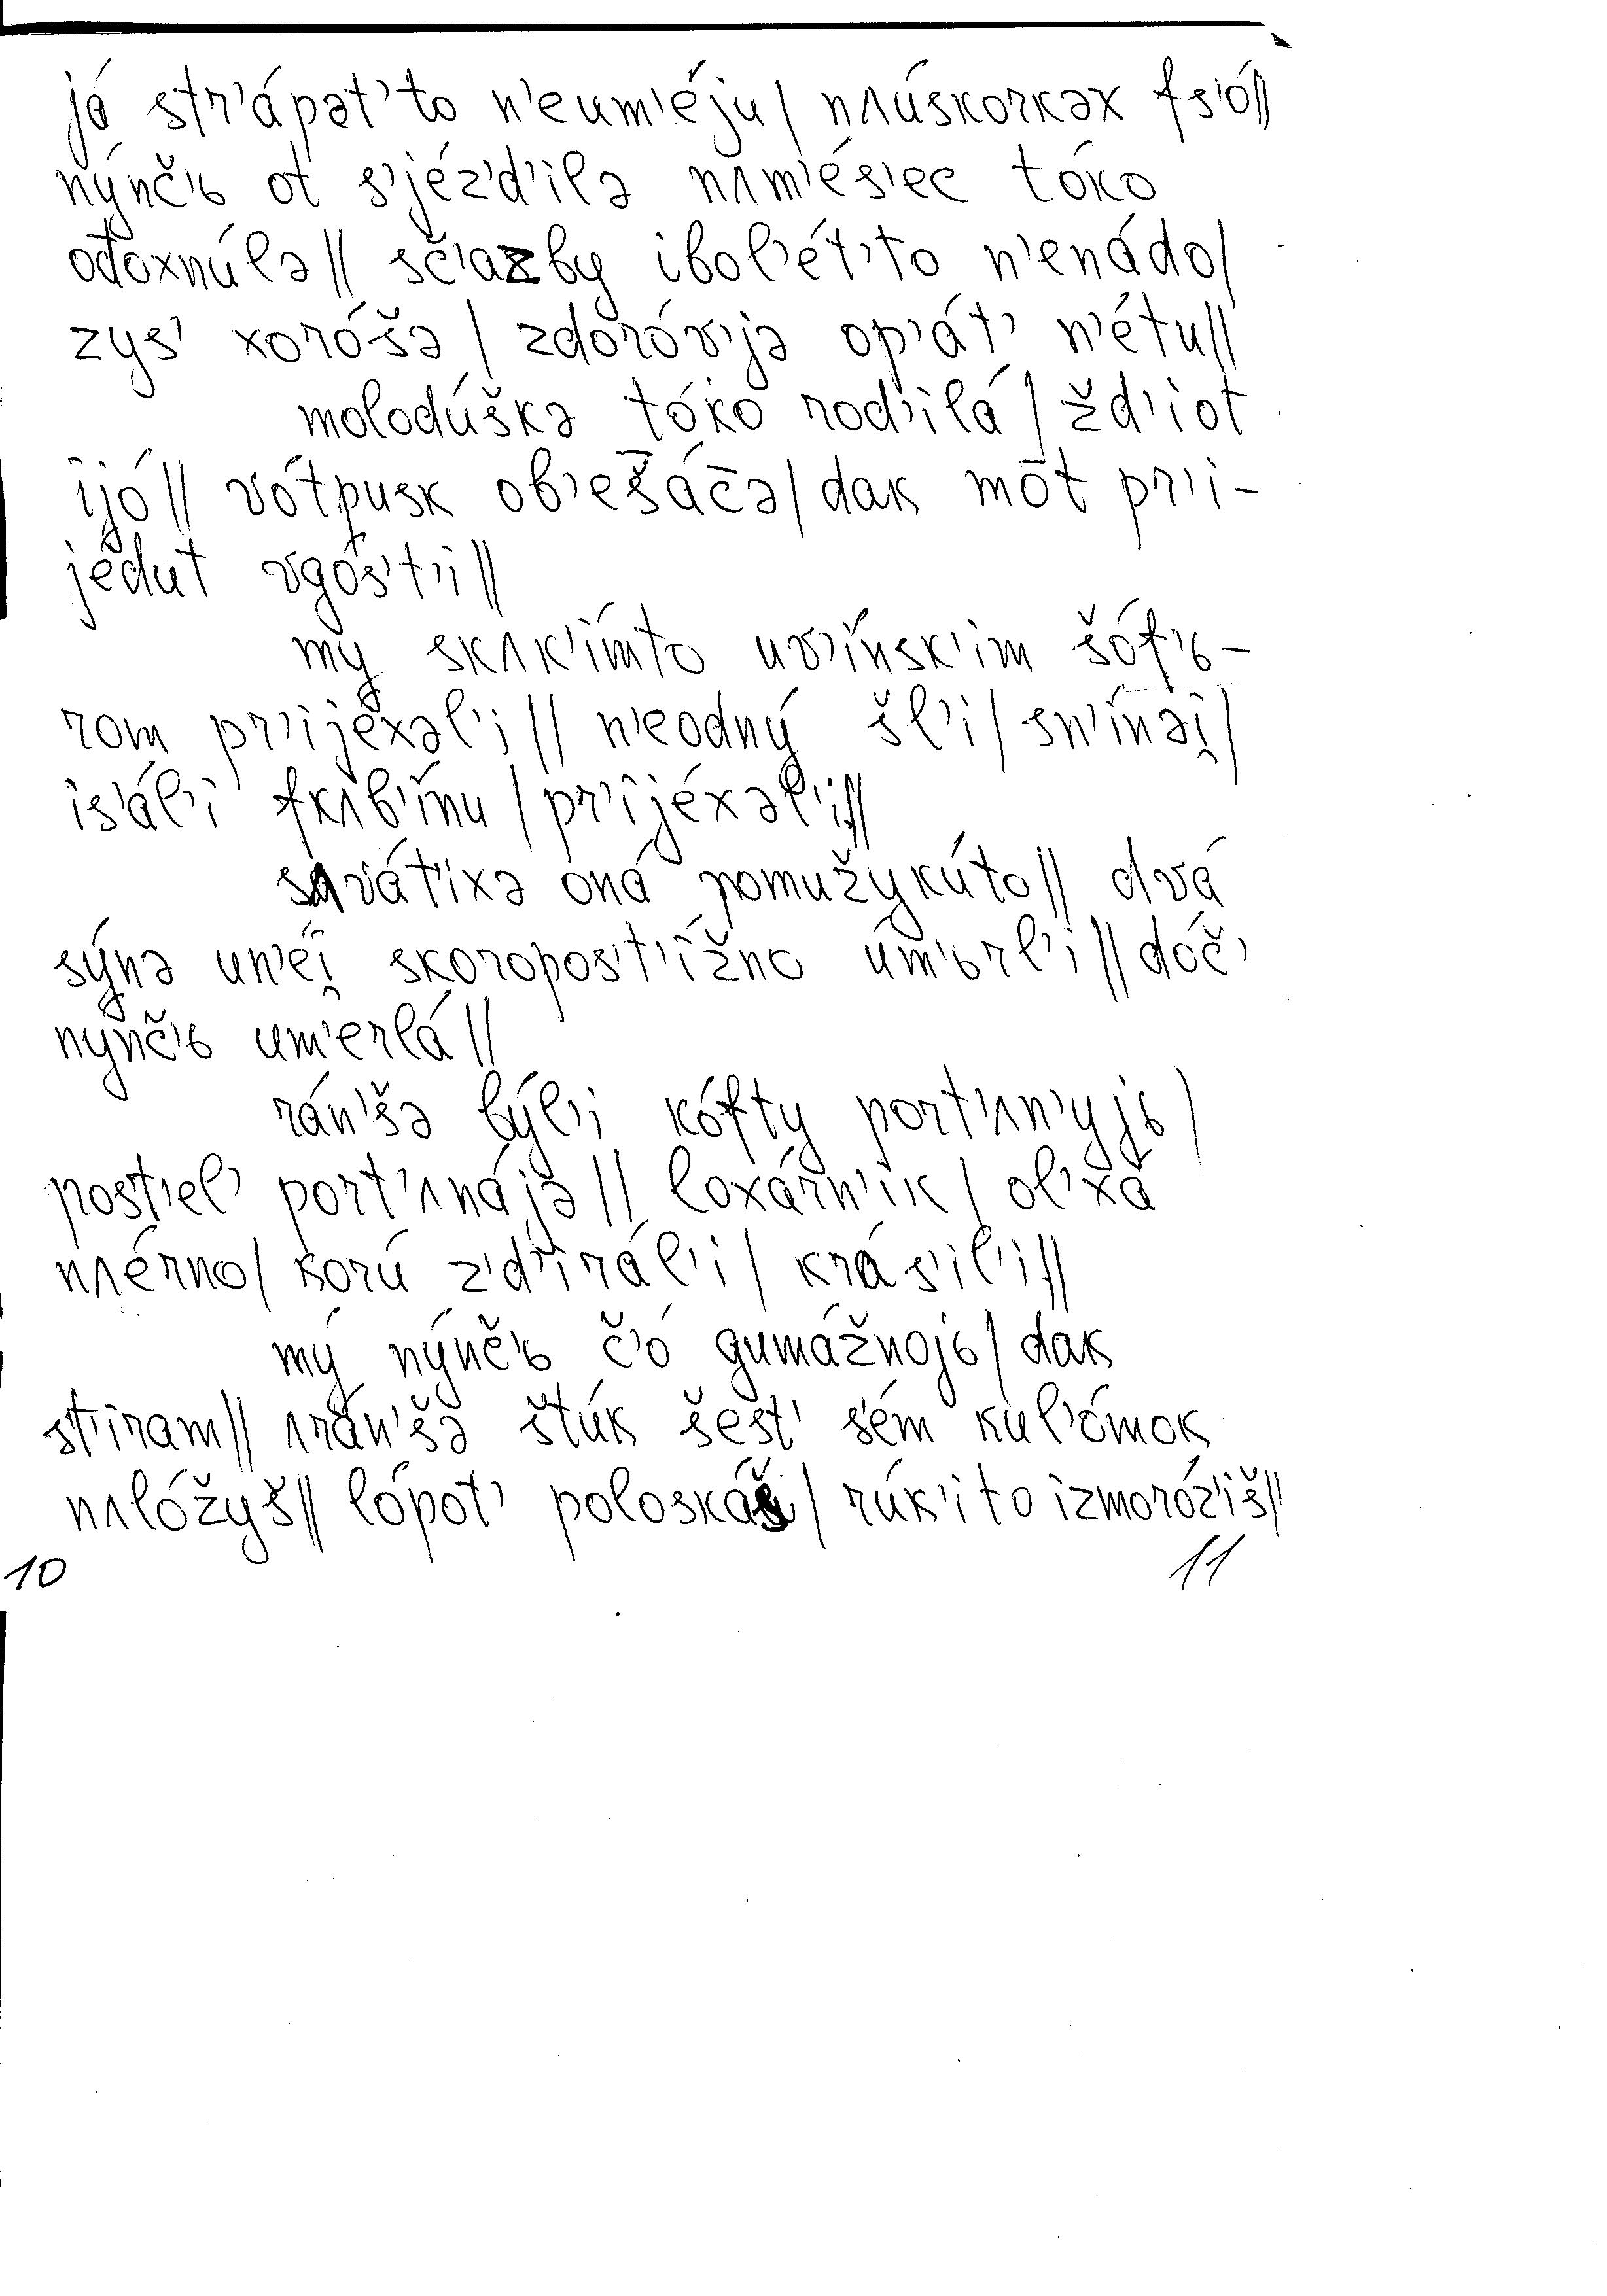 já str'ápət'to n'eum'éju / nʌúskorkəx fs'ó //
nýnč'ь ot s'jéz'd'ilə nʌm'és'ec tóko
oto̅xnúlə // sč'azby ibol'ét'to n'enádo /
zys' xoróšə / zdoróv'jə op'át' n'étu //
molodúškə tóko rod'ilá / žd'iot
ijó // vótpusk ob'eš̅áč̅ə / dak mo̅t pr'i-
jédut vgós't'i //
my skʌk'ímto uv'ínsk'im šóf'ь-
rom pr'ijéxəl'i // n'eodný šl'i / sn'ínəi̯ /
is'ál'i fkʌb'ínu / pr'ijéxəl'i //
svʌ́t'ixə oná pomužykúto // dvá
sýnə un'éi̯ skoropos't'ížno úm'ьrl'i // dóč'
nýnč'ь um'erlá //
rán'šə býl'i kófty port'ʌn'yjь /
pos't'el' port'ʌnájə // loxárn'ik / ol'xá
nʌérno / korú z'd'irál'i / krás'il'i //
mý nýnč'ь č'ó gumážnojь / dak
s't'iram // ʌrán'šə štúk šes't' s'ém kul'ómok
nʌlóžyš // lópot' poloskáš / rúk'ito izmoróz'iš //
10 11